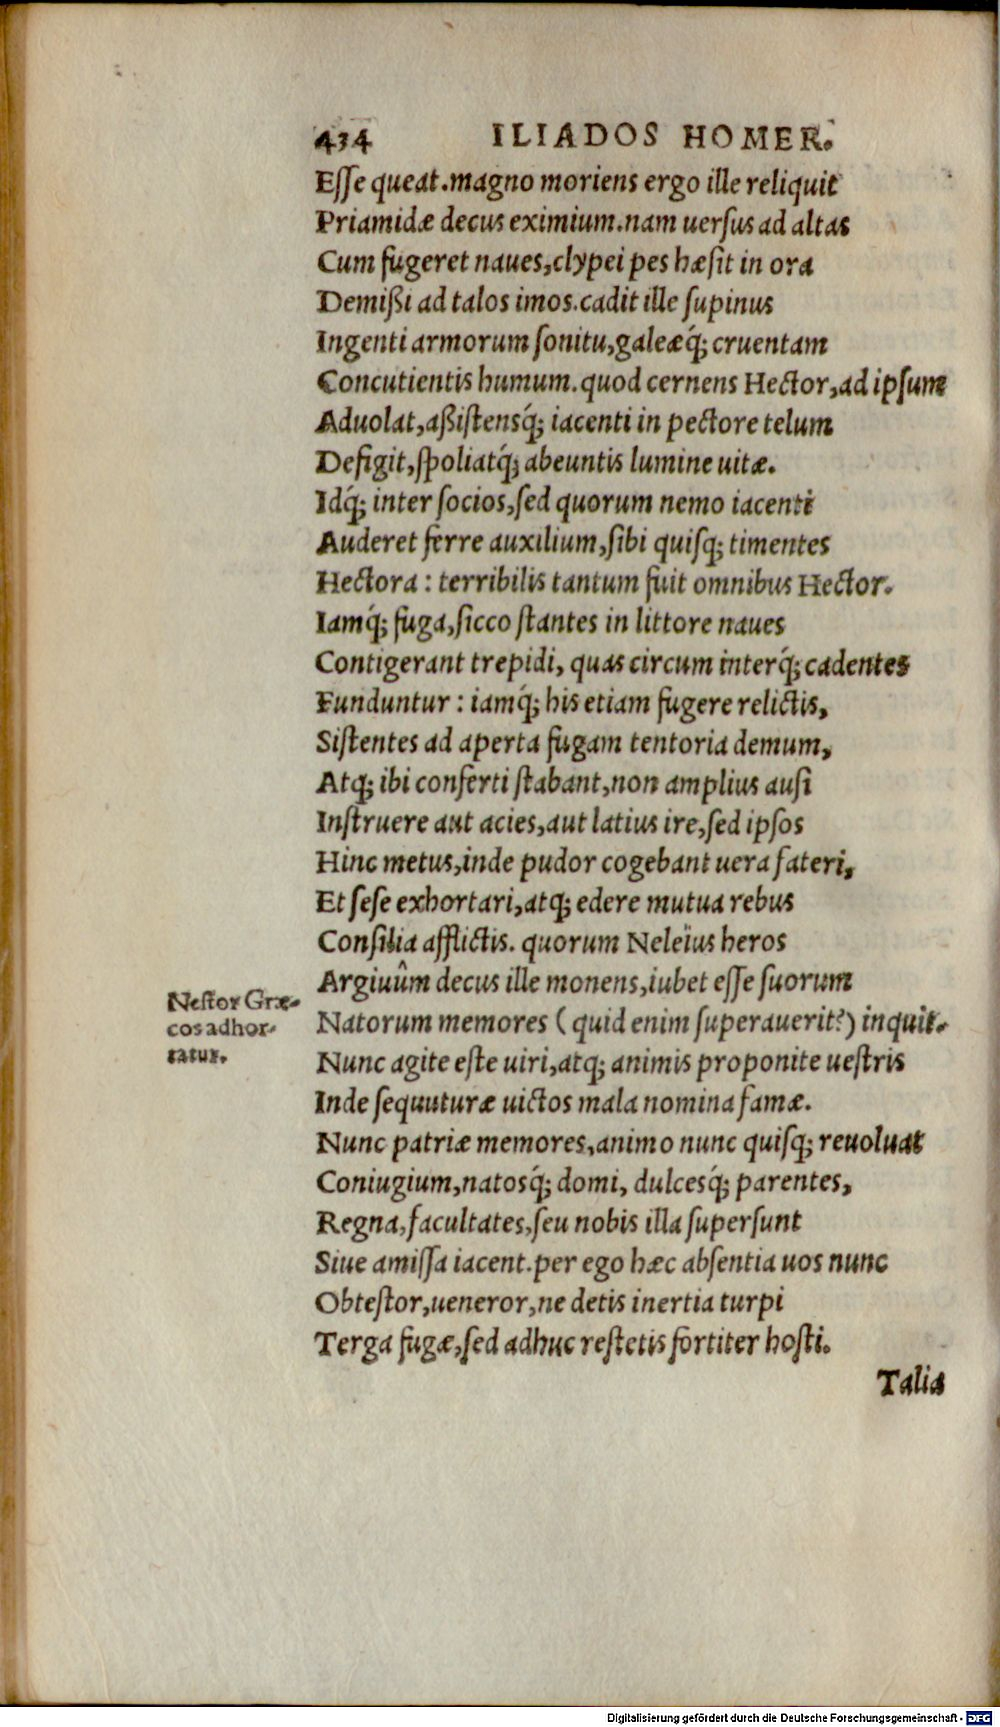 434 ILIADOS HOMER.
Eſſe queat.magno moriens ergo ille reliquit
Priamidæ decus eximium.nam uerſus ad altas
Cum fugeret naues,clypei pes hæſit in ora
Demißi ad talos imos.cadit ille ſupinus
Ingenti armorum ſonitu,galeæq́; cruentam
Concutientis humum.quod cernens Hector,ad ipſum
Aduolat,aßiſtensq́; iacenti in pectore telum
Defigit,ſpoliatq́; abeuntis lumine uitæ.
Idq́; inter ſocios,ſed quorum nemo iacenti
Auderet ferre auxilium,ſibi quiſq; timentes
Hectora: terribilis tantum fuit omnibus Hector.
Iamq́; fuga,ſicco ſtantes in littore naues
Contigerant trepidi, quas circum interq́; cadentes
Funduntur: iamq́; his etiam fugere relictis,
Siſtentes ad aperta fugam tentoria demum,
Atq; ibi conferti ſtabant,non amplius auſi
Inſtruere aut acies,aut latius ire,ſed ipſos
Hinc metus,inde pudor cogebant uera fateri,
Et ſeſe exhortari,atq; edere mutua rebus
Conſilia afflictis. quorum Neleïus heros
Argiuûm decus ille monens,iubet eſſe ſuorum
Neſtor Græ-
cos adhor-
tatur.
Natorum memores (quid enim ſuperauerit?) inquit.
Nunc agite eſte uiri,atq; animis proponite ueſtris
Inde ſequuturæ uictos mala nomina famæ.
Nunc patriæ memores,animo nunc quiſq; reuoluat
Coniugium,natosq́; domi, dulcesq́; parentes,
Regna,facultates,ſeu nobis illa ſuperſunt
Siue amiſſa iacent.per ego hæc abſentia uos nunc
Obteſtor,ueneror,ne detis inertia turpi
Terga fugæ,ſed adhuc reſtetis fortiter hoſti.
Talia
Digitalisierung gefördert durch die Deutsche Forschungsgemeinschaft - DFG